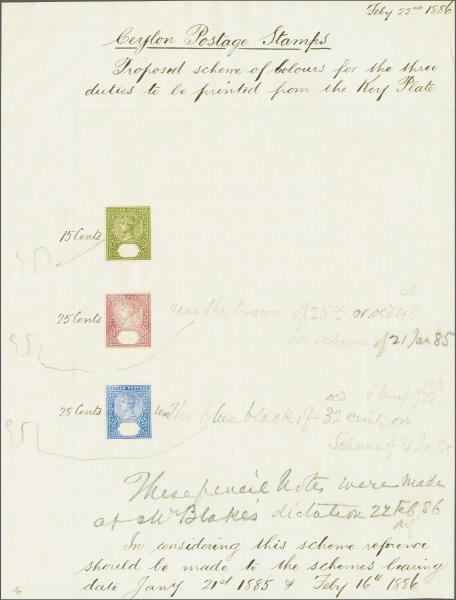 Feby 22nd 1886
Ceylon Postage Stamps
Proposed scheme of Colours for the three
duties to be printed from the Key Plate.
15 Cents
CEYLON POSTAGE
25 Cents
CEYLON POSTAGE
use the brown of 25cts or old 48
on scheme of 21 Jan 85.
28 Cents
CEYLON POSTAGE
The blue black of 32 cents, on
Scheme of 21 Ja 85
These pencil notes were made
at Mr Blake's dictation 22 Feb 86
In considering this scheme reference
should be made to the schemes bearing
date Jany 21st 1885 & Feby 16th 1886.